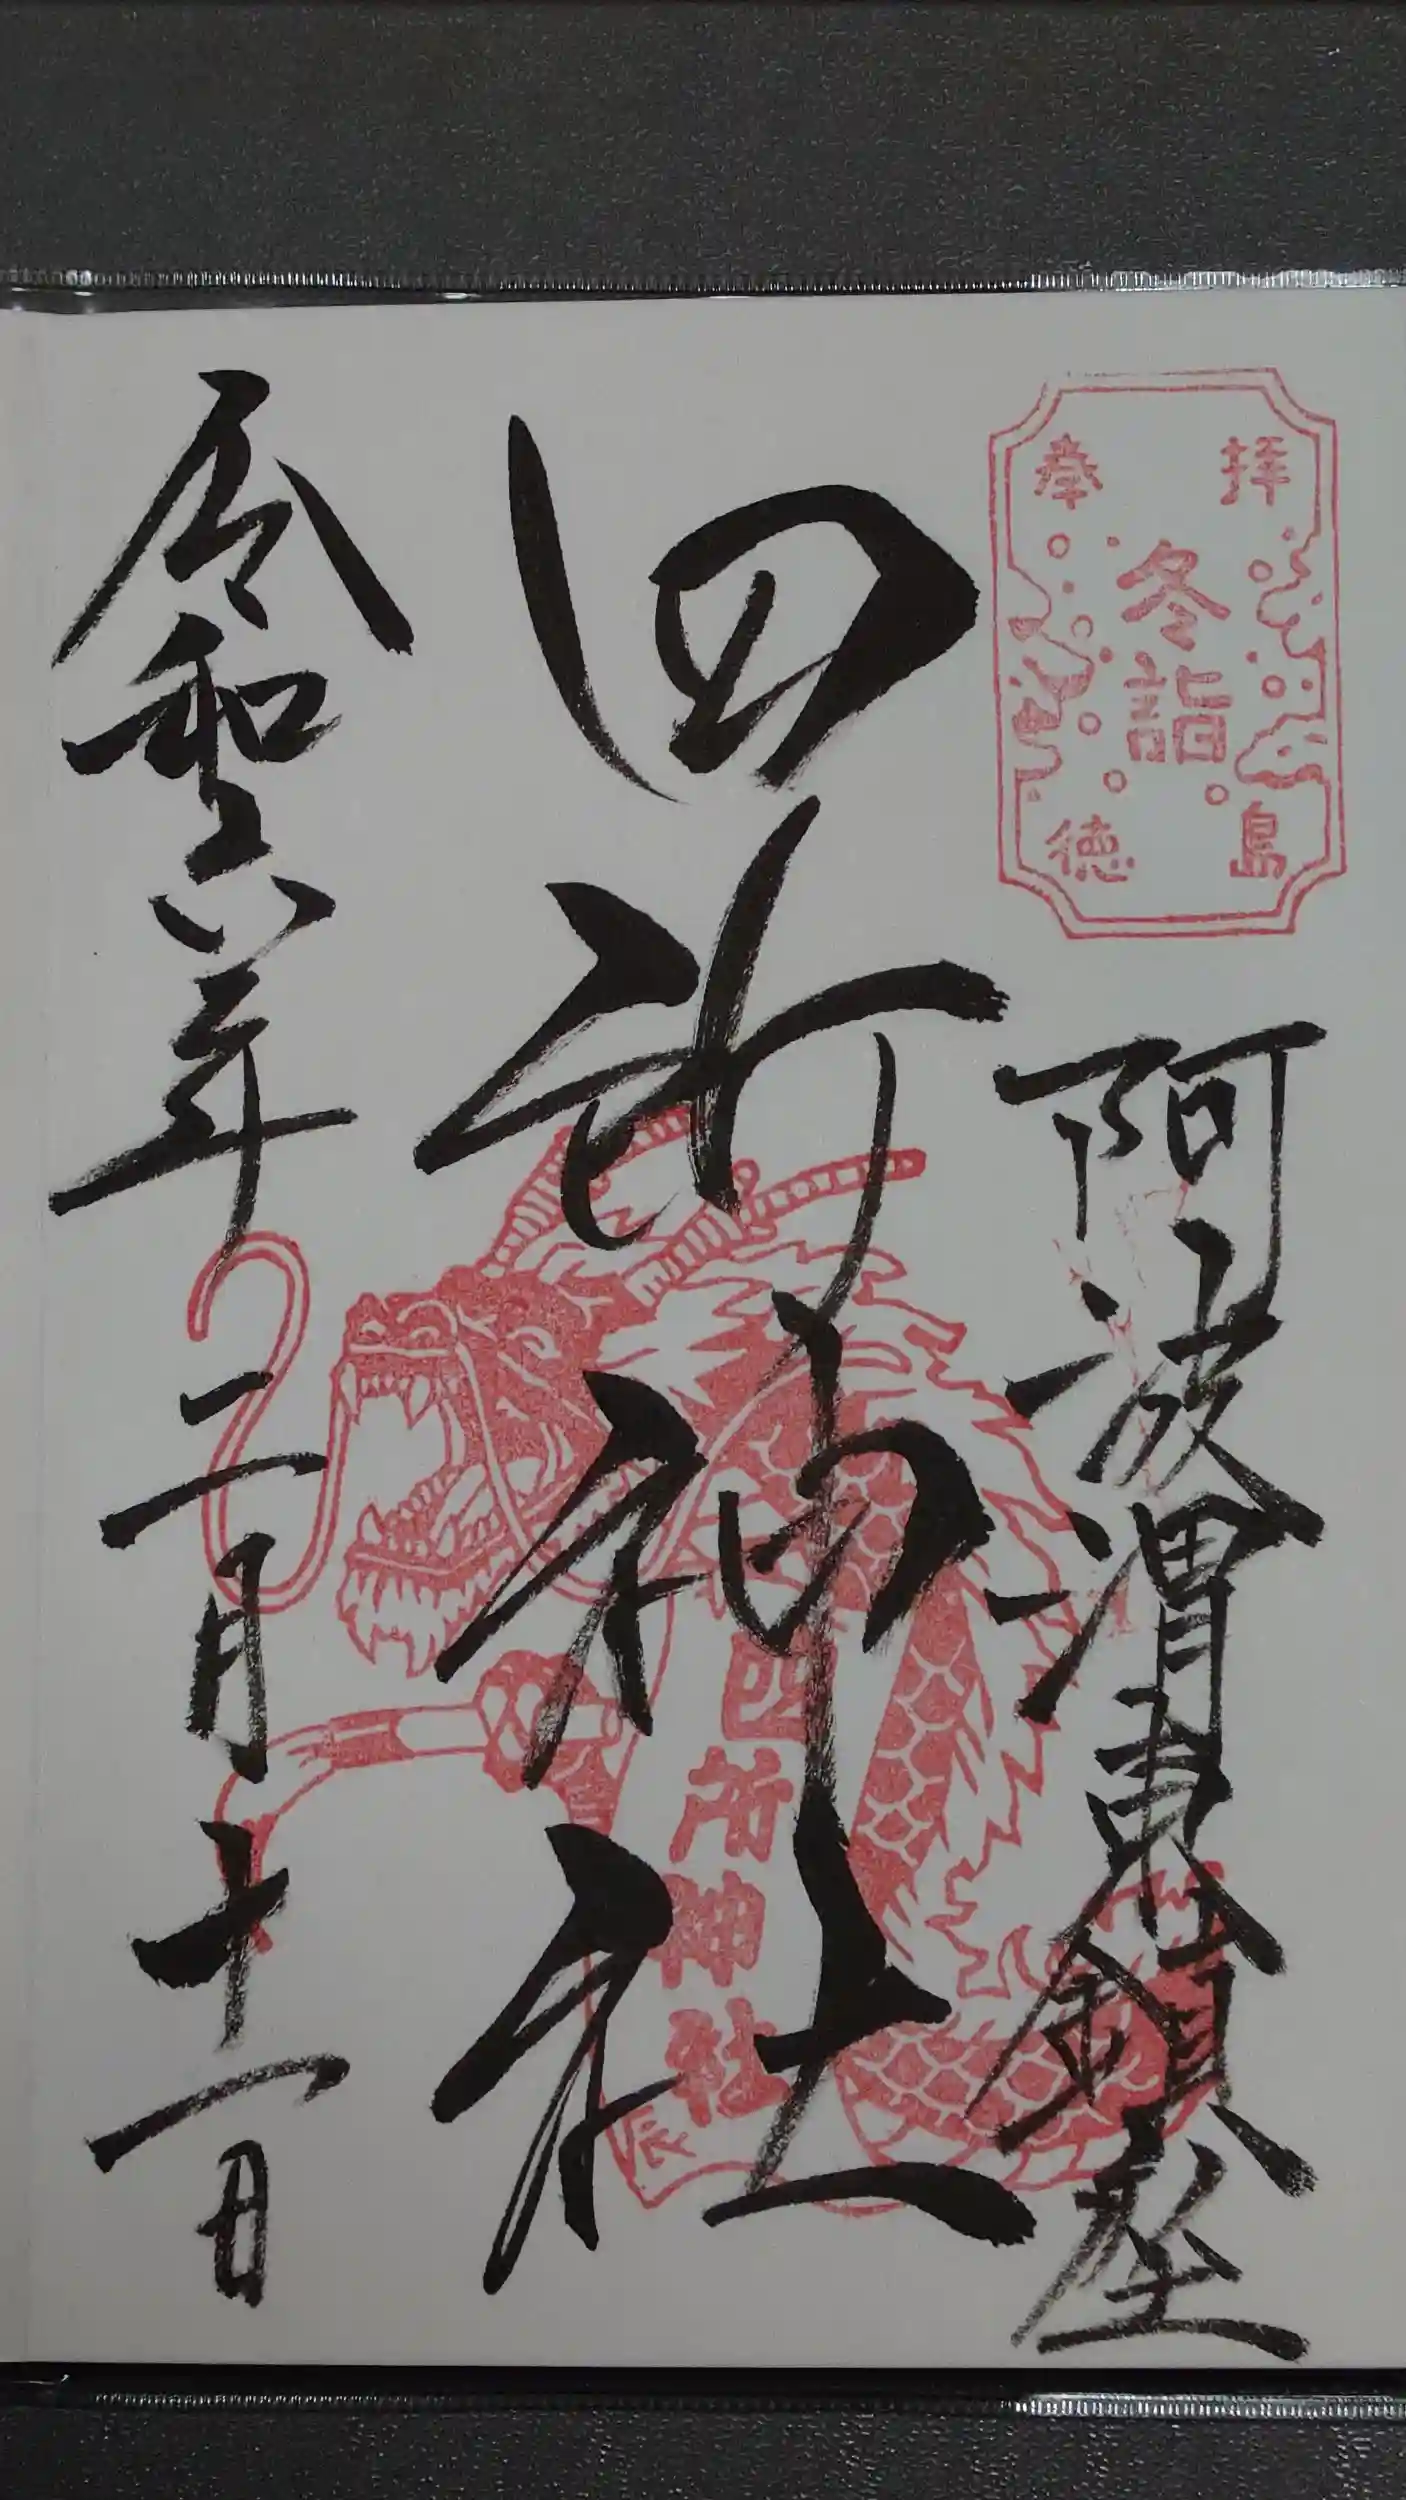 奉拝
冬詣
徳島
阿波渭東鎮座
四所神社
四所神社
辰
令和六年二月十一日